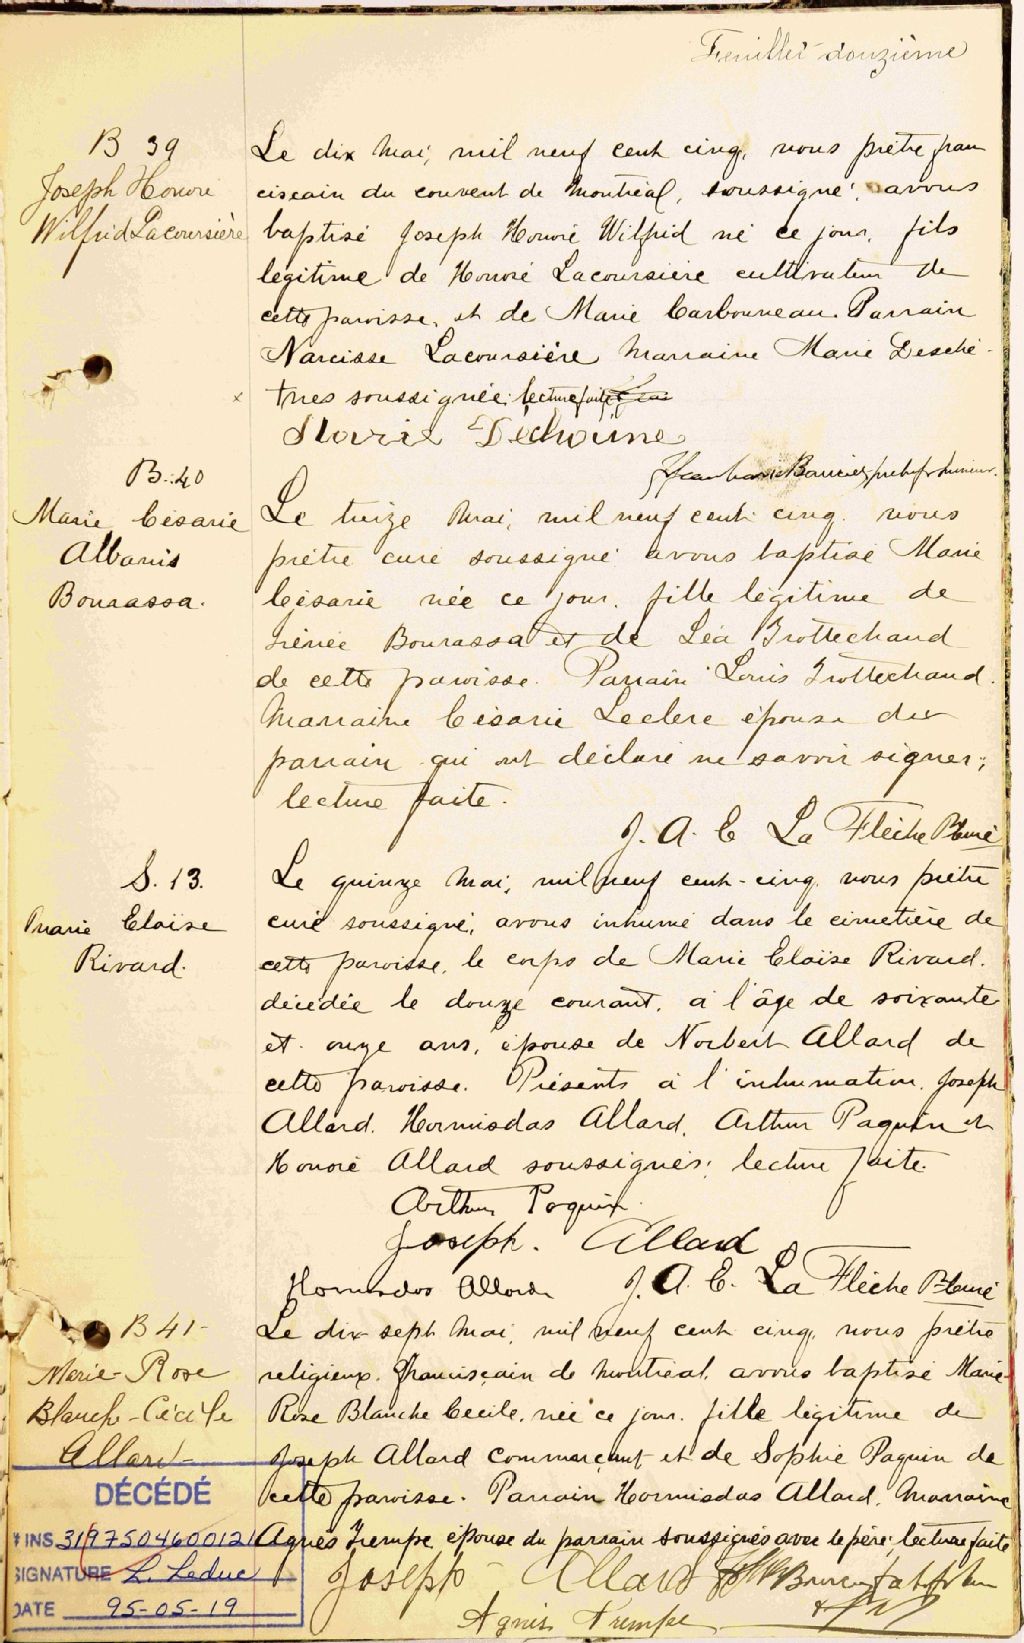 Feuillet douzième
B 39
Joseph Honoré
Wilfrid Lacoursière
Le dix mai, mil neuf cent cinq, nous prêtre fran
ciscain du couvent de Montréal, soussigné, avons
baptisé Joseph Honoré Wilfrid né ce jour, fils
légitime de Honoré Lacoursière cultivateur de
cette paroisse, et de Marie Carbonneau. Parrain
Narcisse Lacoursière Marraine Marie Desché-
nes soussignée; lecture faite
Marie Dechaine
B. 40
Marie Césarie
Albanis
Bouraassa.
Le treize Mai, mil neuf cent cinq, nous
prêtre curé soussigné avons baptisé Marie
Césarie née ce jour, fille légitime de
Irénée Bourassa et de Léa Trottechaud
de cette paroisse. Parrain Louis Trottechaud.
Marraine Césarie Leclerc épouse du
parrain qui ont déclaré ne savoir signer;
lecture faite.
J. A. E La Flèche Ptre curé
S. 13.
Marie Eloïse
Rivard.
Le quinze Mai, mil neuf cent-cinq, nous prêtre
curé soussigné, avons inhumé dans le cimetière de
cette paroisse, le corps de Marie Eloïse Rivard,
décédée le douze courant, à l'âge de soixante
et onze ans, épouse de Norbert Allard de
cette paroisse. Présents à l'inhumation, Joseph
Allard, Hormisdas Allard, Arthur Paquin et
Honoré Allard soussignés; lecture faite.
Arthur Paquin
Joseph. Allard
Hormisdas Allard J. A. E. La Flèche Ptre curé
B 41-
Marie-Rose
Blanche-Cécile
Allard-
Le dix sept Mai, mil neuf cent cinq, nous prêtre
religieux franciscain de Montréal, avons baptisé Marie-
Rose Blanche Cécile, née ce jour, fille légitime de
Joseph Allard commerçant et de Sophie Paquin de
cette paroisse. Parrain Hormisdas Allard, Marraine
Agnès Trempe épouse du parrain soussignés avec le père; lecture faite
Joseph Allard
Agnis Trempe
DÉCÉDÉ
# INS 3197504600121
SIGNATURE L. Leduc
DATE 95-05-19